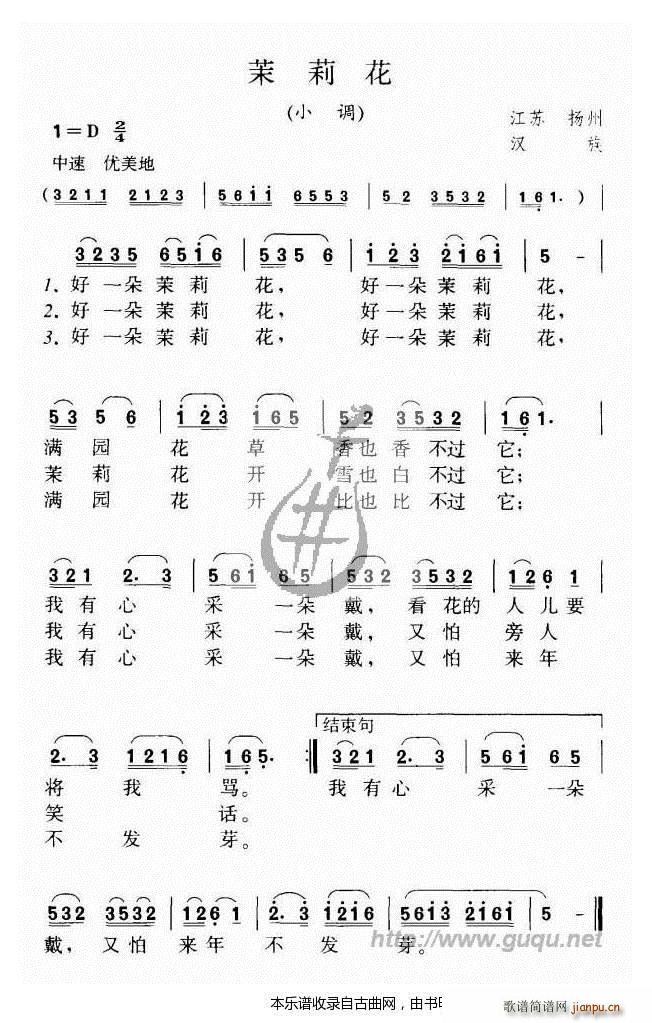 茉 莉 花
(小 调)
1=D 2/4
江苏 扬州
汉 族
中速 优美地
(3211 2123 | 561̇1̇ 6553 | 52 3532 | 16̣1. )
3235 651̇6 | 535 6 | 1̇2̇3̇ 2̇1̇61̇ | 5 - |
1. 好一朵茉莉 花, 好一朵茉莉 花,
2. 好一朵茉莉 花, 好一朵茉莉 花,
3. 好一朵茉莉 花, 好一朵茉莉 花,
53 5 6 | 1̇2̇3̇ 1̇65 | 52 3532 | 16̣1. |
满 园 花 草 香也香不过 它;
茉 莉 花 开 雪也白不过 它;
满 园 花 开 比也比不过 它;
321 2. 3 | 561̇ 65 | 532 3532 | 126̣ 1 |
我有心 采 一朵 戴, 看花的 人儿要
我有心 采 一朵 戴, 又怕 旁人
我有心 采 一朵 戴, 又怕 来年
结束句
2. 3 1216̣ | 16̣5̣. :‖ 321 2. 3 | 561̇ 65 |
将 我 骂。 我有心 采 一朵
笑 话。
不 发 芽。
532 3532 | 126̣ 1 | 2. 3 1216 | 561̇3̇ 2̇1̇61̇ | 5 - ‖
戴, 又怕 来年 不 发 芽。
http://www.guqu.net
本乐谱收录自古曲网，由书
歌谱简谱网 jianpu.cn